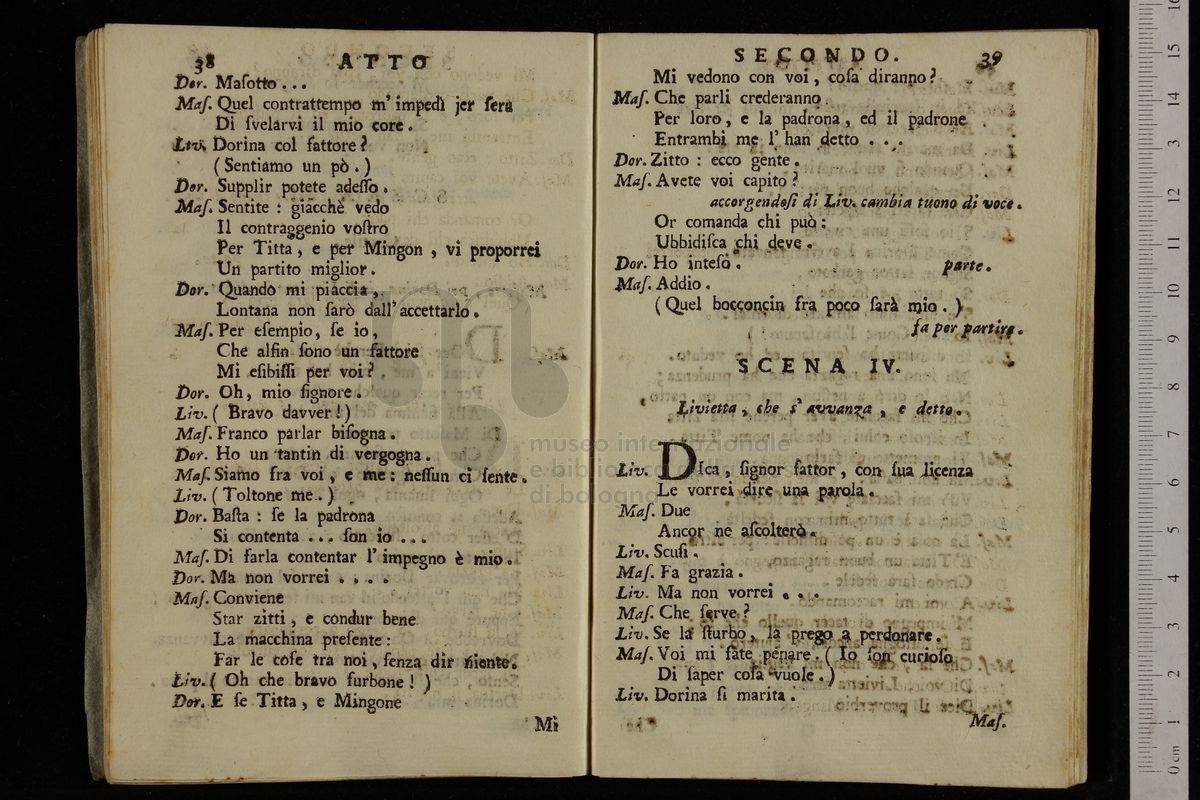 38 ATTO
Dor. Maſotto...
Maſ. Quel contrattempo m' impedì jer ſera
Di ſvelarvi il mio core.
Liv. Dorina col fattore?
(Sentiamo un pò.)
Dor. Supplir potete adeſſo.
Maſ. Sentite : giacchè vedo
Il contraggenio voſtro
Per Titta, e per Mingon, vi proporrei
Un partito miglior.
Dor. Quando mi piaccia,
Lontana non ſarò dall' accettarlo.
Maſ. Per eſempio, ſe io,
Che alfin ſono un fattore
Mi eſibiſſi per voi?
Dor. Oh, mio ſignore.
Liv. ( Bravo davver!)
Maſ. Franco parlar biſogna.
Dor. Ho un tantin di vergogna.
Maſ. Siamo fra voi, e me: neſſun ci ſente.
Liv. (Toltone me.)
Dor. Baſta : ſe la padrona
Si contenta ... ſon io ...
Maſ. Di farla contentar l' impegno è mio.
Dor. Ma non vorrei ....
Maſ. Conviene
Star zitti, e condur bene
La macchina preſente:
Far le coſe tra noi, ſenza dir niente.
Liv. ( Oh che bravo furbone! )
Dor. E ſe Titta, e Mingone
Mì
SECONDO. 39
Mi vedono con voi, coſa diranno?
Maſ. Che parli crederanno
Per loro, e la padrona, ed il padrone
Entrambi me l' han detto ...
Dor. Zitto : ecco gente.
Maſ. Avete voi capito?
accorgendoſi di Liv. cambia tuono di voce.
Or comanda chi può:
Ubbidiſca chi deve.
Dor. Ho inteſo. parte.
Maſ. Addio.
(Quel bocconcin fra poco ſarà mio.)
fa per partire.
SCENA IV.
Livietta, che s' avvanza, e detto.
Liv. DIca, ſignor fattor, con ſua licenza
Le vorrei dire una parola.
Maſ. Due
Ancor ne aſcolterò.
Liv. Scuſi.
Maſ. Fa grazia.
Liv. Ma non vorrei ...
Maſ. Che ſerve?
Liv. Se la ſturbo, la prego a perdonare.
Maſ. Voi mi fate penare. (Io ſon curioſo
Di ſaper coſa vuole.)
Liv. Dorina ſi marita.
Maſ.
museo internazionale
e biblio
di bologna
0 cm 1 2 3 4 5 6 7 8 9 10 11 12 13 14 15 16